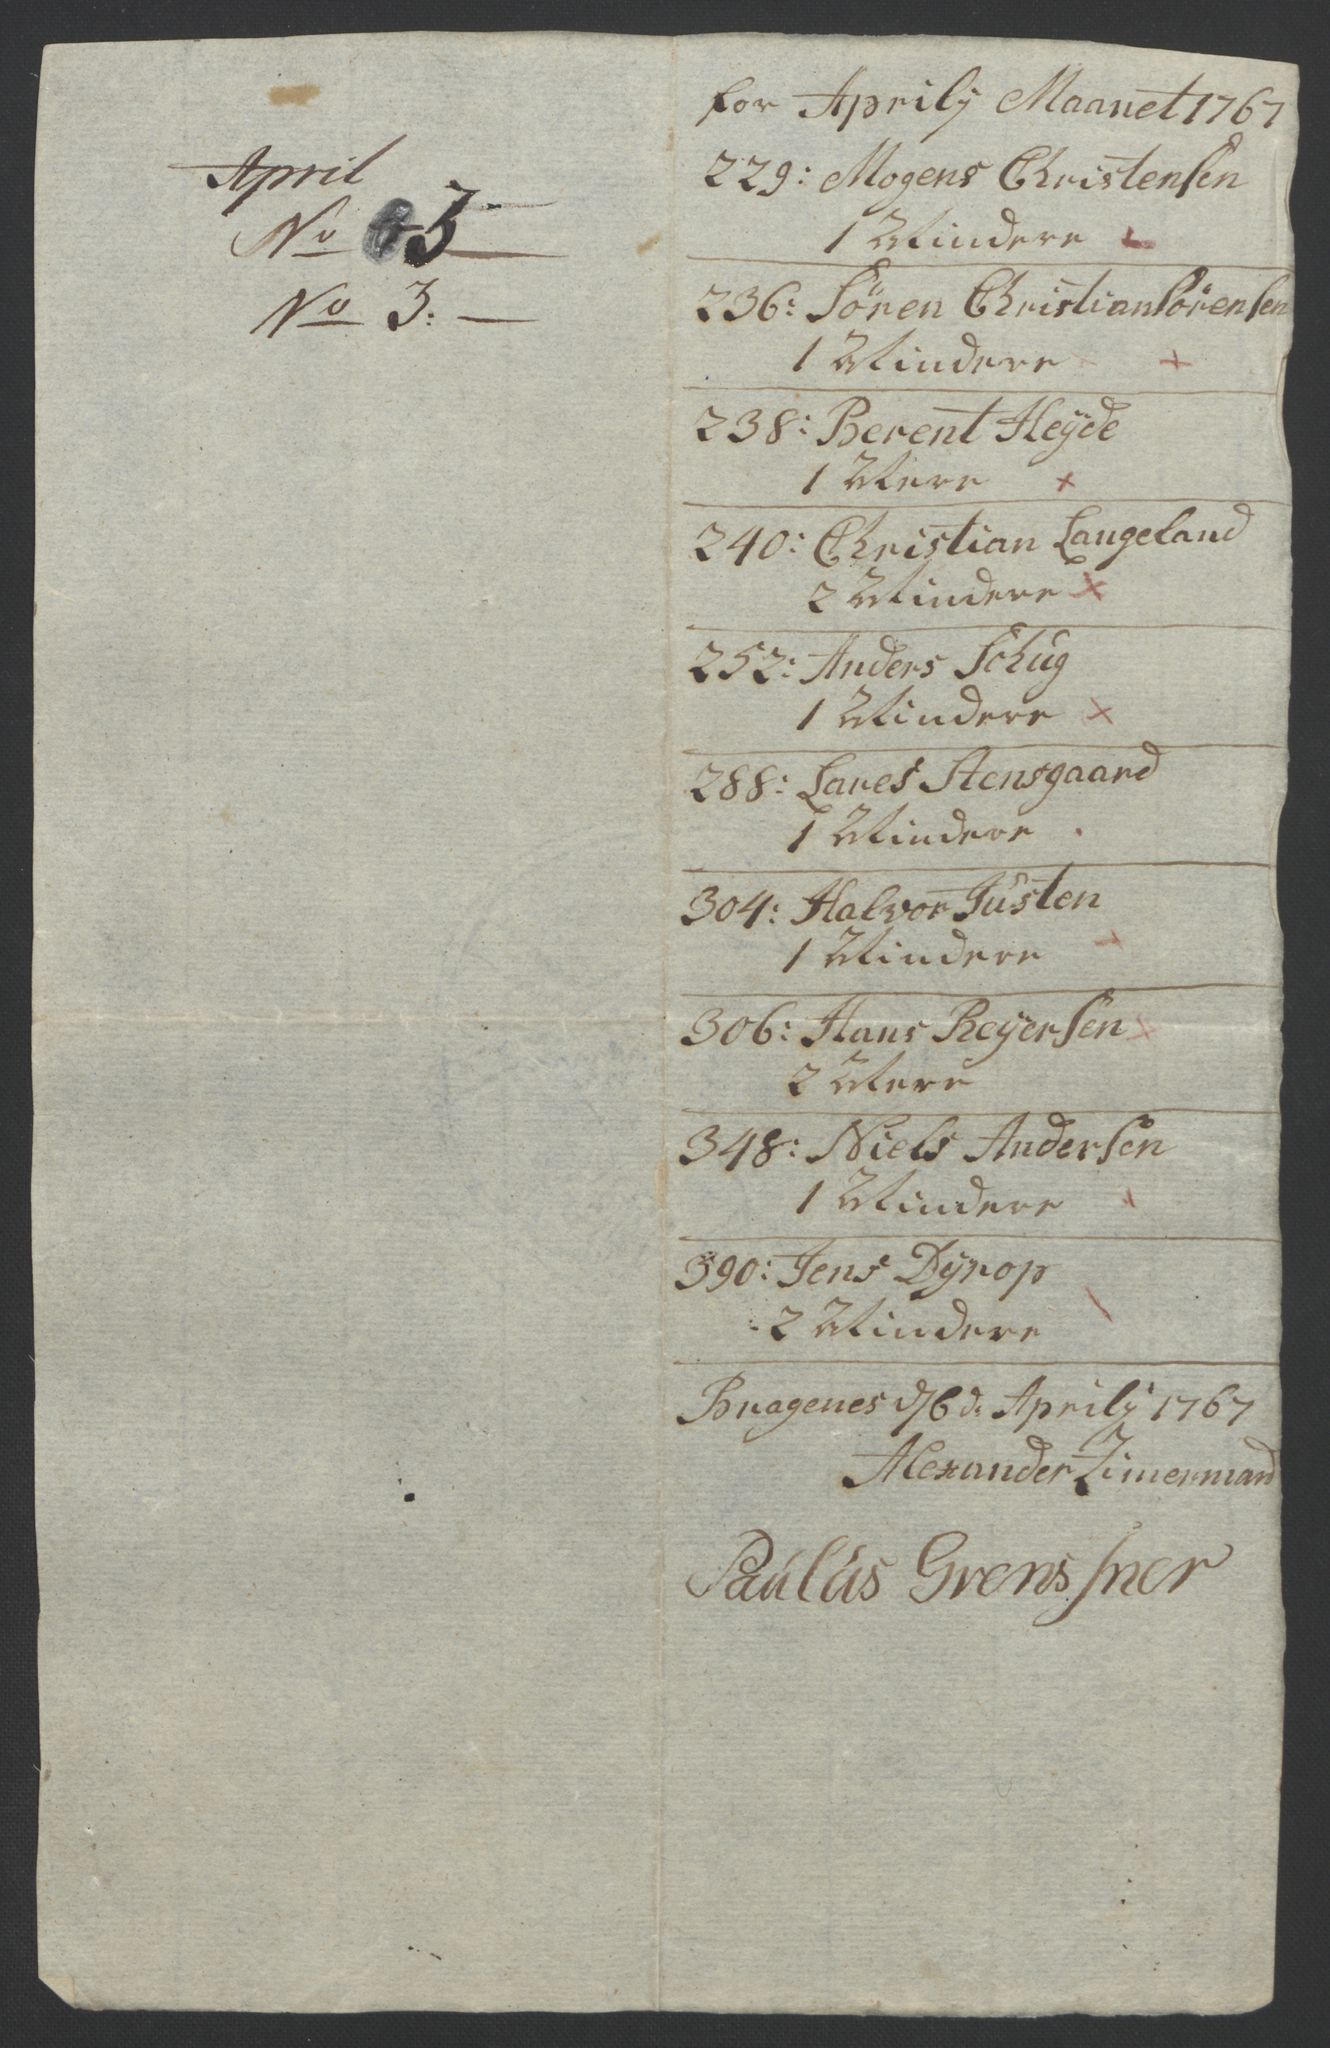 April
No 3
No 3:
for Aprilj Maanet 1767
229: Mogens Christensen
1 Mindere
236: Sören Christian Sörensen
1 Mindere
238: Berent Heyde
1 Mere
240: Christian Langeland
2 Mindere
252: Anders Schug
1 Mindere
288: Lares Stensgaard
1 Mindere
304: Halvor Justen
1 Mindere
306: Hans Reyersen
2 Mere
348: Niels Andersen
1 Mindere
390: Jens Dyrop
2 Mindere
Bragenes d/6 d: Aprilj 1767
Alexander Zimermand
Paulus Grensner